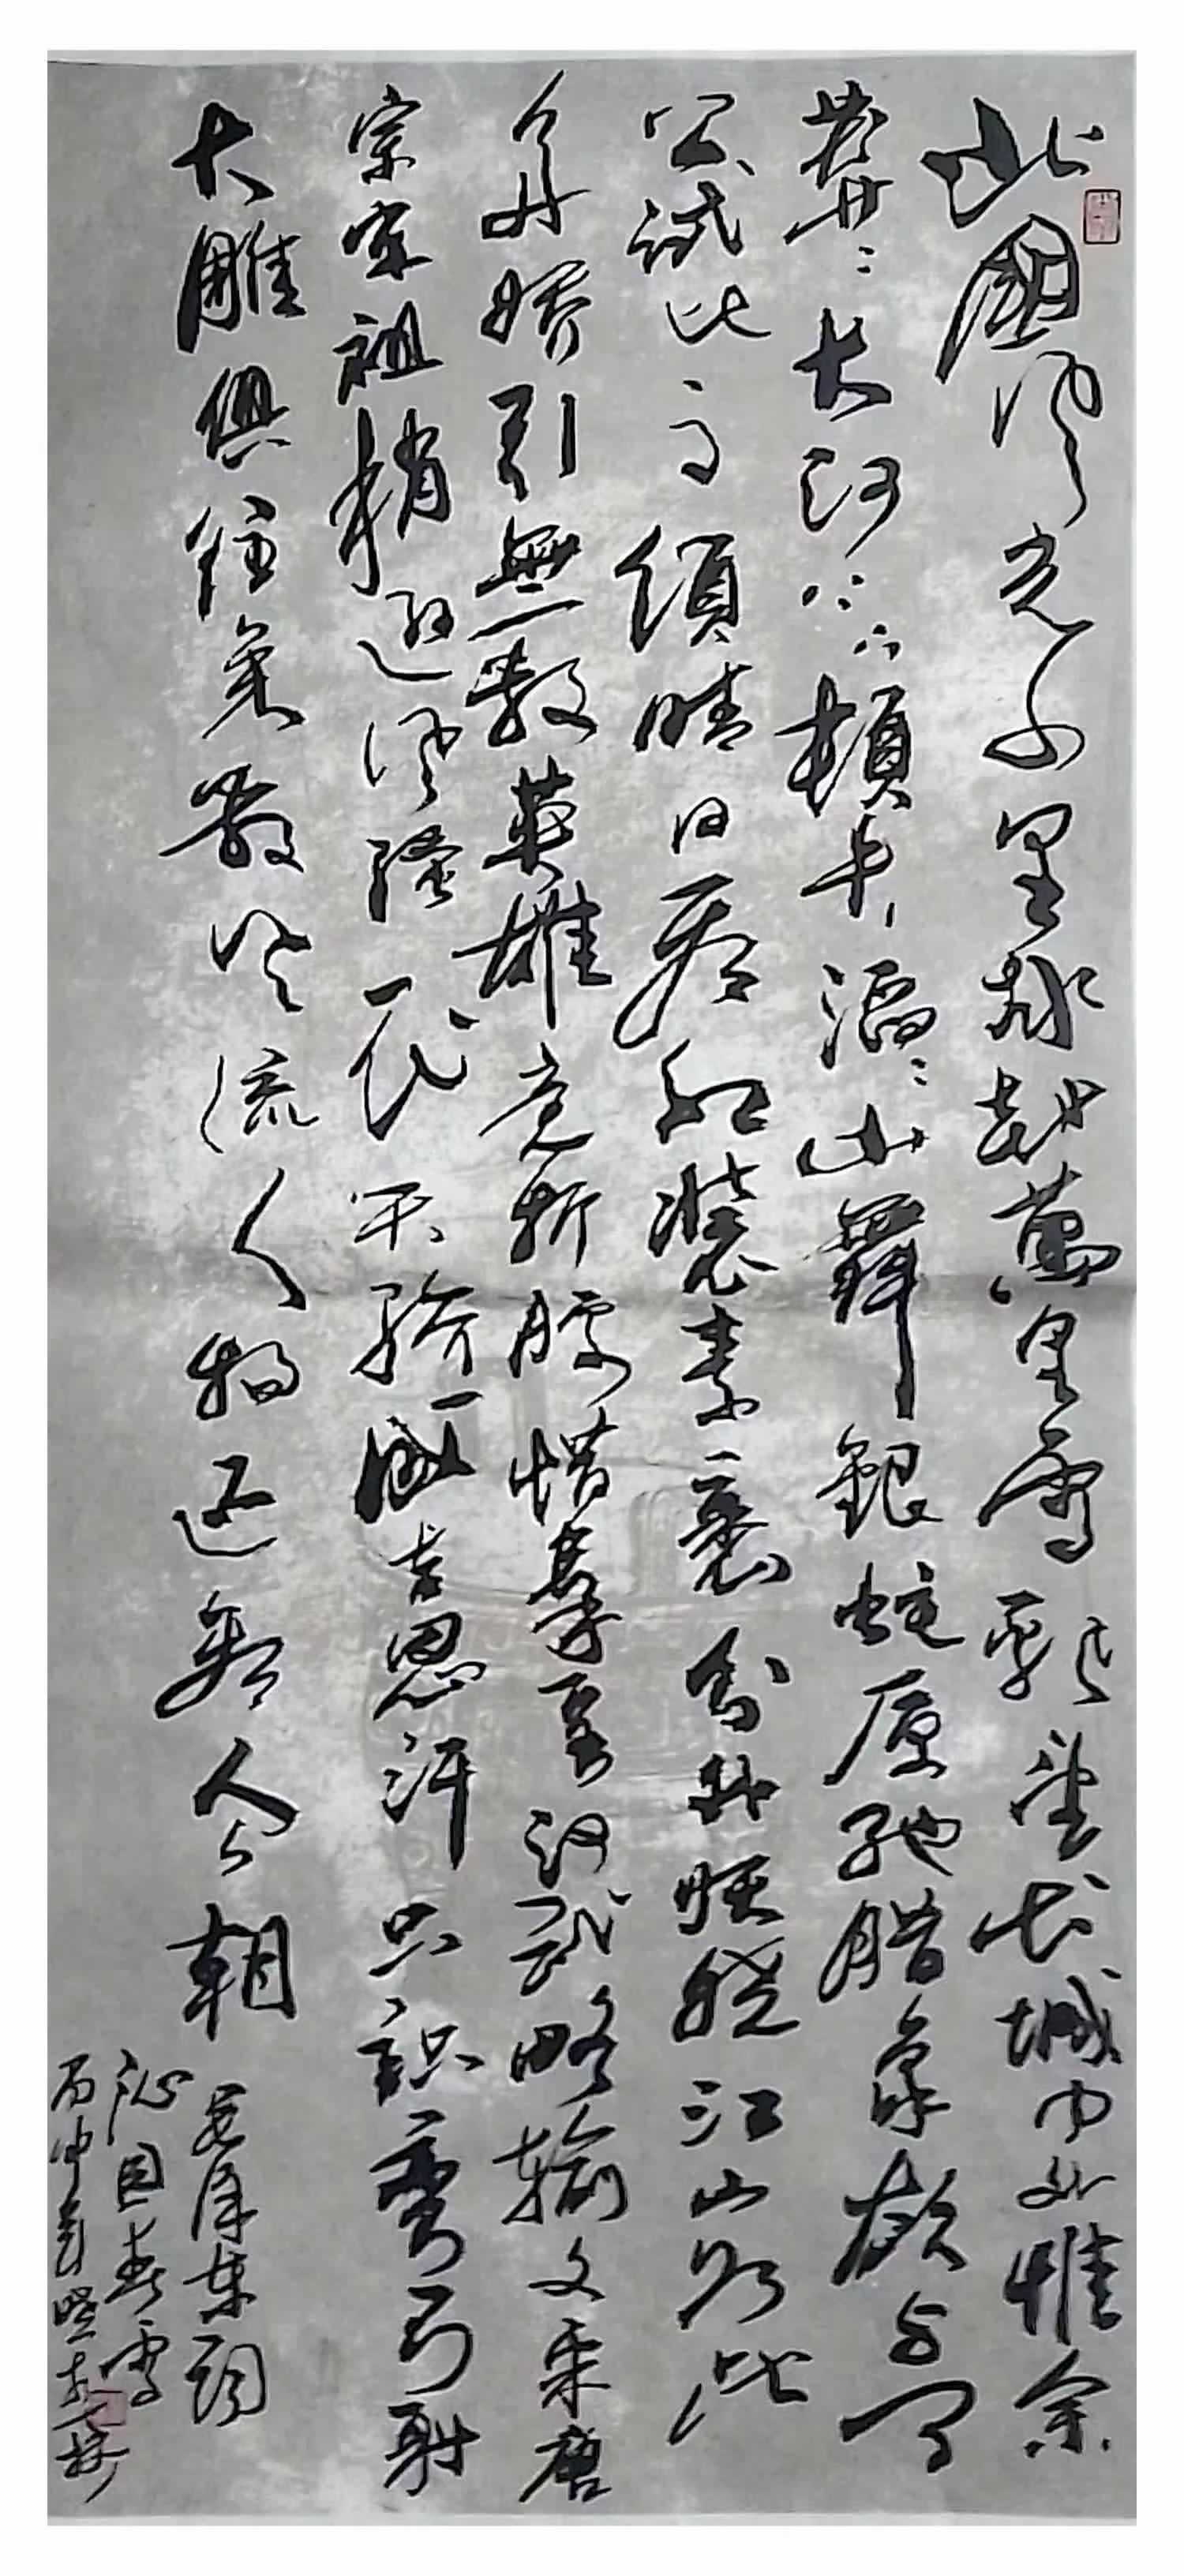 北國風光千里冰封萬里雪飄望長城内外惟余
莽莽大河上下頓失滔滔山舞銀蛇原馳腊象欲与
天公試比高須晴日看紅裝素裹分外妖嬈江山如此
多嬌引無數英雄竞折腰惜秦皇漢武略輸文采唐
宗宋祖稍遜風騷一代天驕成吉思汗只識彎弓射
大雕俱往矣數风流人物还看今朝
毛澤東詞
沁园春雪
丙申年